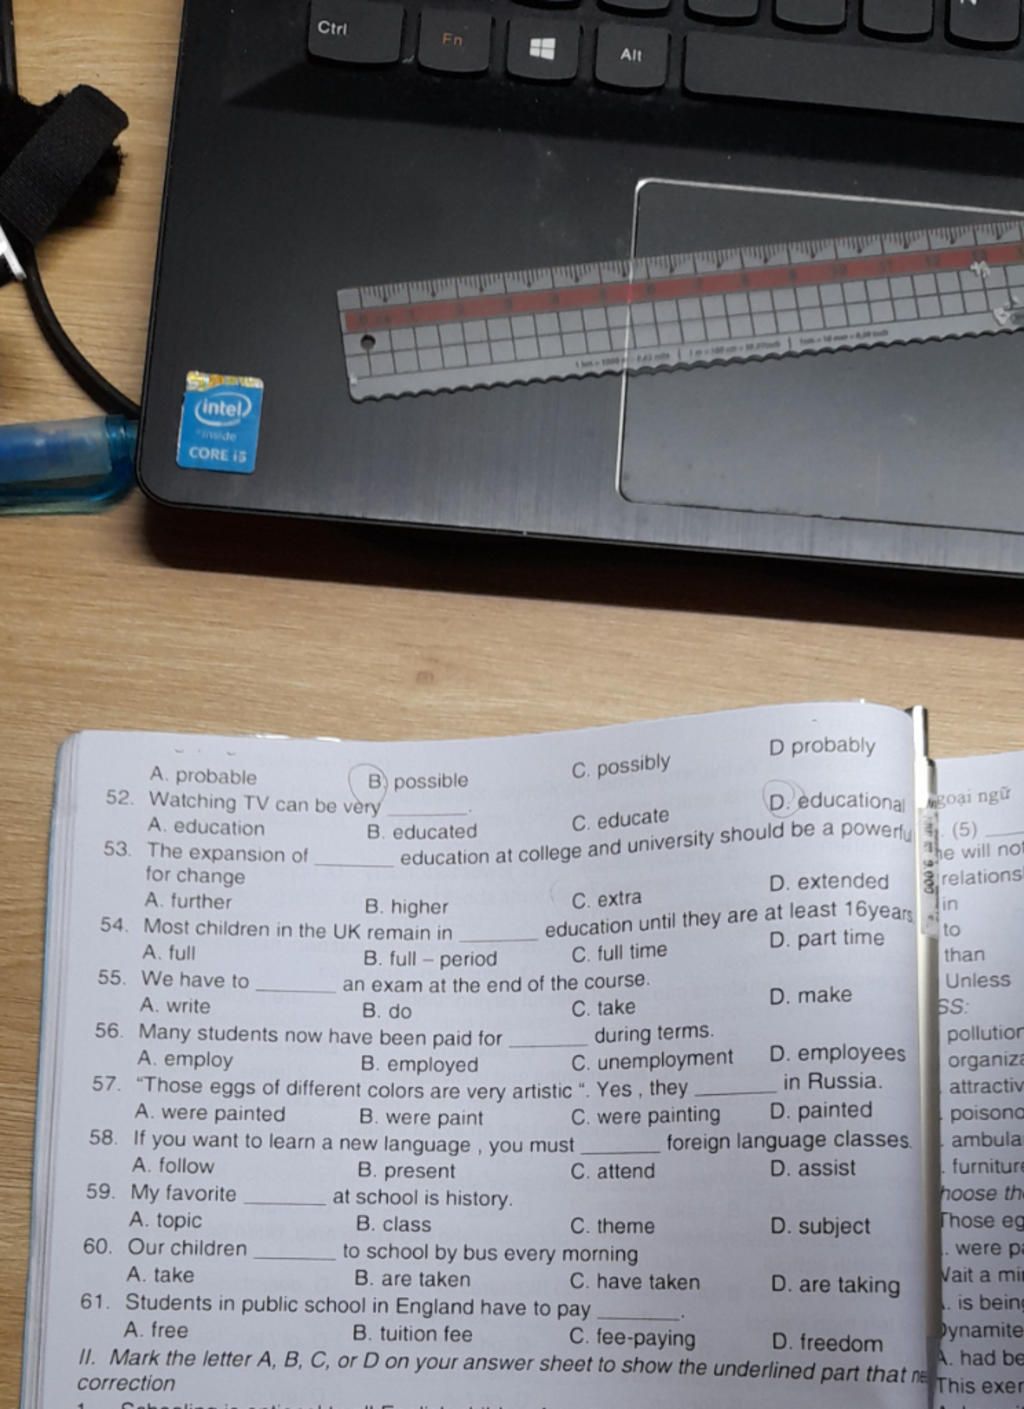 Ctrl
Fn
Alt
intel
inside
CORE i5
A. probable B. possible C. possibly D probably
52. Watching TV can be very ________.
A. education B. educated C. educate D. educational
53. The expansion of ________ education at college and university should be a powerfu
for change
A. further B. higher C. extra D. extended
54. Most children in the UK remain in ________ education until they are at least 16years
A. full B. full – period C. full time D. part time
55. We have to ________ an exam at the end of the course.
A. write B. do C. take D. make
56. Many students now have been paid for ________ during terms.
A. employ B. employed C. unemployment D. employees
57. "Those eggs of different colors are very artistic “. Yes , they ________ in Russia.
A. were painted B. were paint C. were painting D. painted
58. If you want to learn a new language , you must ________ foreign language classes.
A. follow B. present C. attend D. assist
59. My favorite ________ at school is history.
A. topic B. class C. theme D. subject
60. Our children ________ to school by bus every morning
A. take B. are taken C. have taken D. are taking
61. Students in public school in England have to pay ________.
A. free B. tuition fee C. fee-paying D. freedom
II. Mark the letter A, B, C, or D on your answer sheet to show the underlined part that ne
correction
goại ngữ
. (5) ____
he will not
relations
in
to
than
Unless
SS:
pollution
organiza
attractiv
poisono
ambula
furniture
hoose the
Those eg
. were pa
Wait a mi
. is being
Dynamite
A. had be
This exer